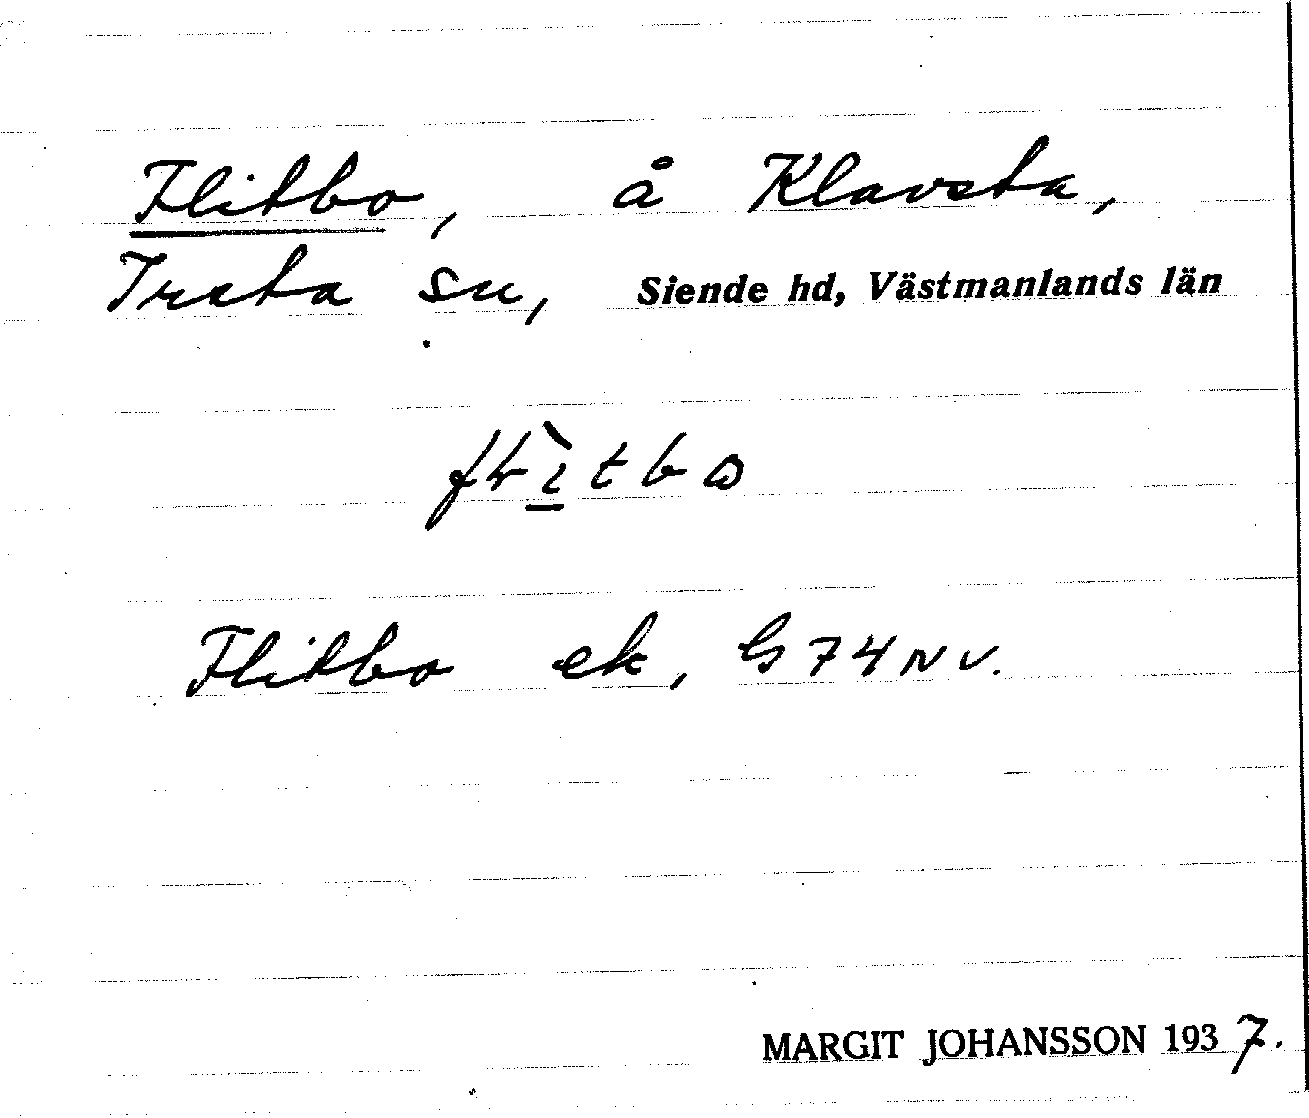 Flitbo, å Klavsta,
Irsta sn, Siende hd, Västmanlands län
Flitbo ek, G 74 NV.
MARGIT JOHANSSON 1937.